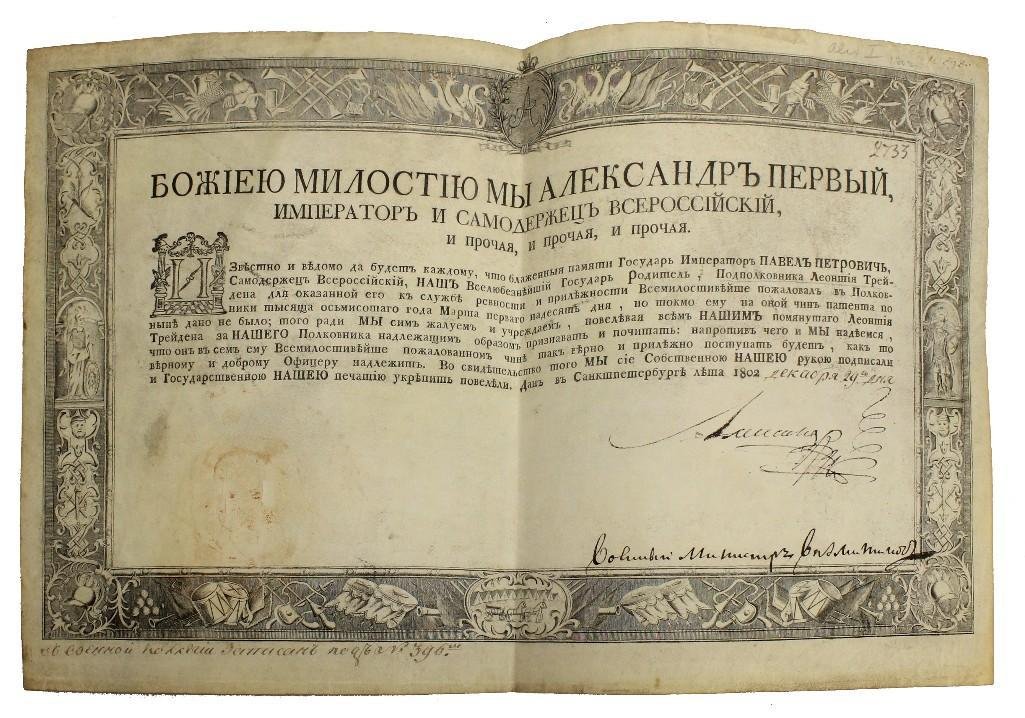 2733
БОЖІЕЮ МИЛОСТІЮ МЫ АЛЕКСАНДРЪ ПЕРВЫЙ,
ИМПЕРАТОРЪ И САМОДЕРЖЕЦЪ ВСЕРОССІЙСКІЙ,
И ПРОЧАЯ, И ПРОЧАЯ, И ПРОЧАЯ.
ИЗвѣстно и вѣдомо да будетъ каждому, что блаженныя памяти Государь Императоръ ПАВЕЛЪ ПЕТРОВИЧЬ,
Самодержецъ Всероссійскій, НАШЪ Вселюбезнѣйшій Государь Родитель, Подполковника Леонтія Трей-
дена для оказанной его къ службѣ ревности и прилѣжности Всемилостивѣйше пожаловалъ въ Полков-
ники тысяща осьмисотаго года Марша перваго надесять дня, но токмо ему на оной чинъ патента по
нынѣ дано не было; того ради МЫ симъ жалуемъ и учреждаемъ, повелѣвая всѣмъ НАШИМЪ помянутаго Леонтія
Трейдена за НАШЕГО Полковника надлежащимъ образомъ признавать и почитать: напротивъ чего и МЫ надѣемся,
что онъ въ семъ ему Всемилостивѣйше пожалованномъ чинѣ такъ вѣрно и прилѣжно поступать будетъ, какъ то
вѣрному и доброму Офицеру надлежитъ. Во свидѣтельство того МЫ сіе Собственною НАШЕЮ рукою подписали
и Государственною НАШЕЮ печатію укрѣпить повелѣли. Данъ въ Санктпетербургѣ лѣта 1802 декабря 29го дня
Александръ
Военный Министръ Вязмитиновъ
въ военной коллегіи записанъ подъ №